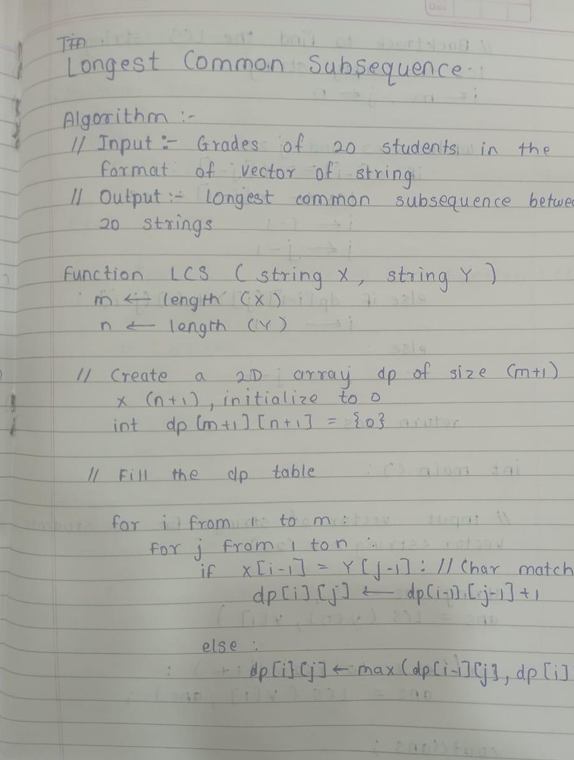 Longest Common Subsequence.
Algorithm :-
// Input :- Grades of 20 students in the
format of vector of string
// Output :- longest common subsequence betwe
20 strings
Function LCS ( string X, string Y )
m ← length (X)
n ← length (Y)
// Create a 2D array dp of size (m+1)
x (n+1), initialize to 0
int dp [m+1][n+1] = {0}
// Fill the dp table
for i from 1 to m :
for j from 1 to n :
if X[i-1] = Y[j-1] : // Char match
dp[i][j] ← dp[i-1][j-1]+1
else :
dp[i][j] ← max(dp[i-1][j], dp[i]